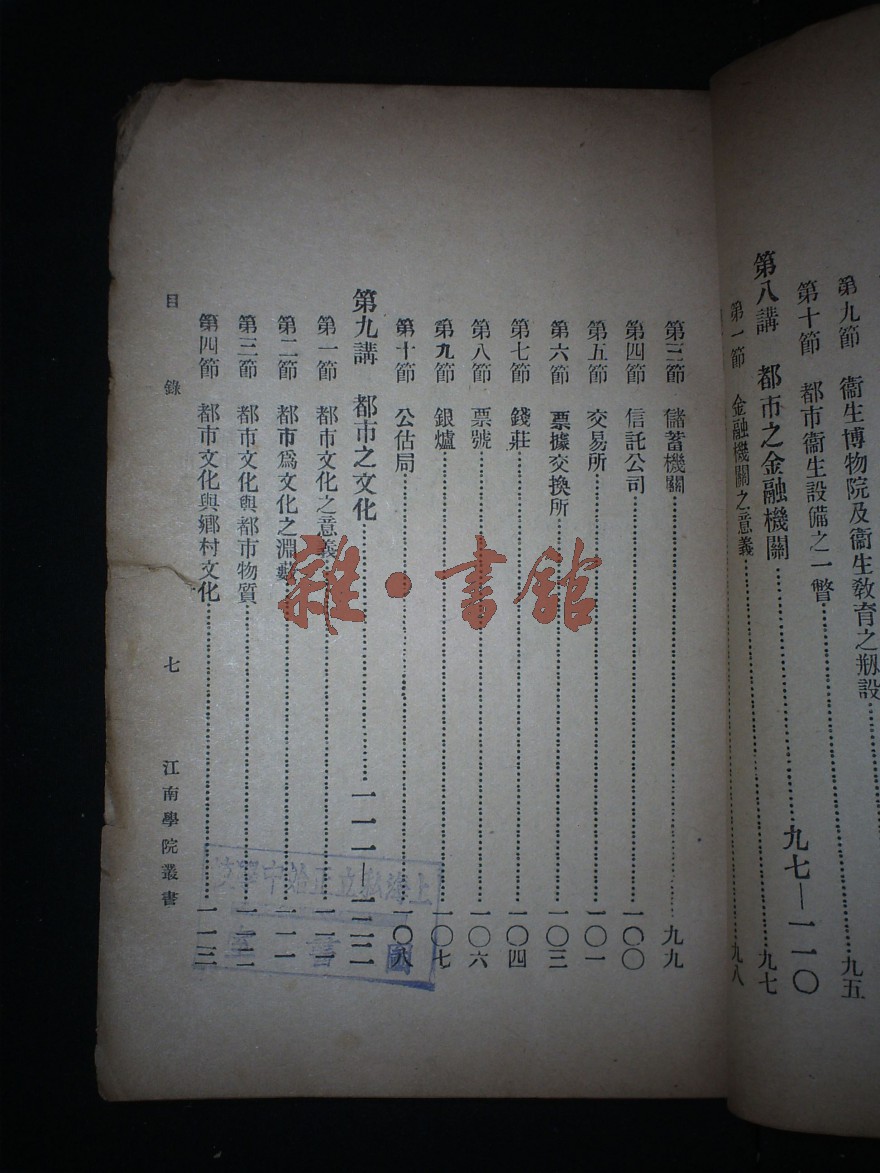 第九節 衞生博物院及衞生教育之刱設
第十節 都市衞生設備之一瞥……九五
第八講 都市之金融機關……九七—一一〇
第一節 金融機關之意義……九七
九八
第三節 儲蓄機關……九九
第四節 信託公司……一〇〇
第五節 交易所……一〇一
第六節 票據交換所……一〇三
第七節 錢莊……一〇四
第八節 票號……一〇六
第九節 銀爐……一〇七
第十節 公估局……一〇八
第九講 都市之文化……一一一—
第一節 都市文化之意義……一一一
第二節 都市爲文化之淵藪……一一一
第三節 都市文化與都市物質……一一二
第四節 都市文化與鄉村文化……一一三
目錄 七 江南學院叢書
雜·書館
上海私立正始中學校
圖書室